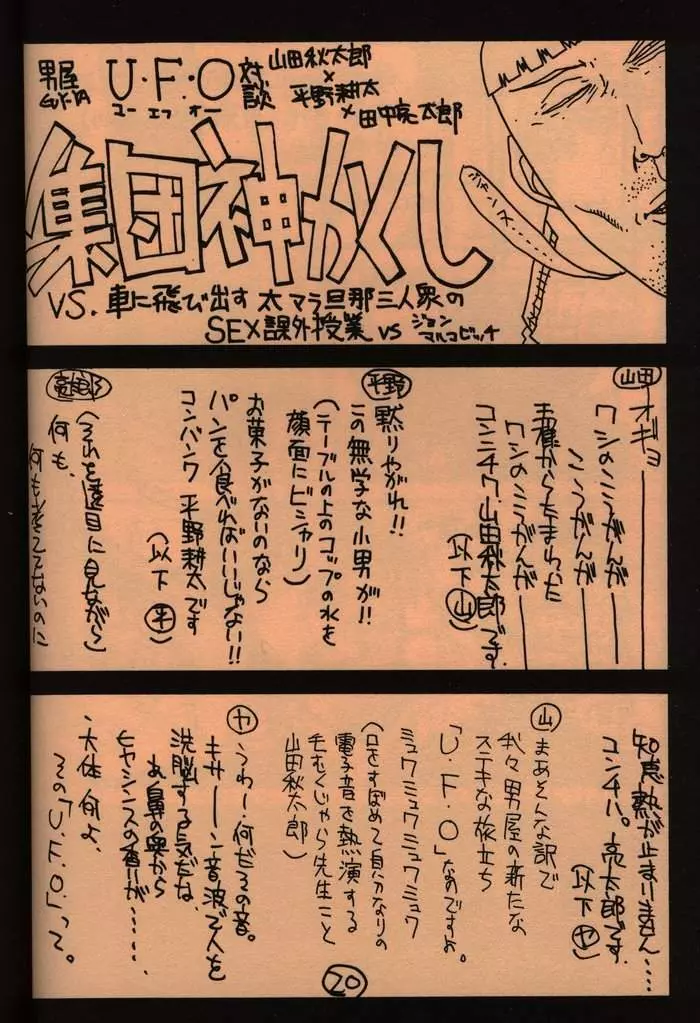 男屋
GUY-YA
U・F・O
ユー エフ オー
対談
山田秋太郎
×
平野耕太
×田中亮太郎
集団神かくし
VS. 車に飛び出す 太マラ旦那三人衆の
SEX課外授業 VS ジョン
マルコビッチ
山田
オギョ―――
ワシのこうがんが―――
こうがんが―――
王様からたまわった
ワシのこうがんが―――
コンニチワ、山田秋太郎です。
(以下 山)
平野
黙りやがれ!!
この無学な小男が!!
(テーブルの上のコップの水を
顔面にビシャリ)
お菓子がないのなら
パンを食べればいいじゃない!!
コンバンワ 平野耕太です
(以下 平)
亮太郎
(それを遠目に見ながら)
何も、
何も考えてないのに
知恵熱が止まりません……
コンチハ。亮太郎です。
(以下 ヤ)
山
まあそんな訳で
我々男屋の新たな
ステキな旅立ち
「U・F・O」なのですよ。
ミュワミュワミュワミュワ
(口をすぼめて自分なりの
電子音を熱演する
毛むくじゃら先生こと
山田秋太郎)
ヤ
うわー。何だその音。
キサーン音波で人を
洗脳する気だな、
お鼻の奥から
ヒヤシンスの香りが……、
、大体何よ、
その「U.F.O」って。
20